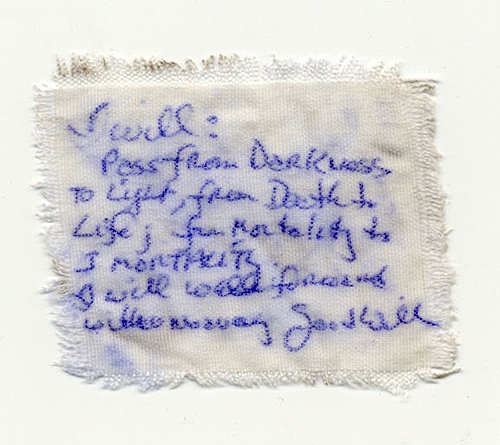 I will:
Pass from Darkness
to Light, from Death to
Life; from Mortality to
Immortality
I will walk forward
Goodwill